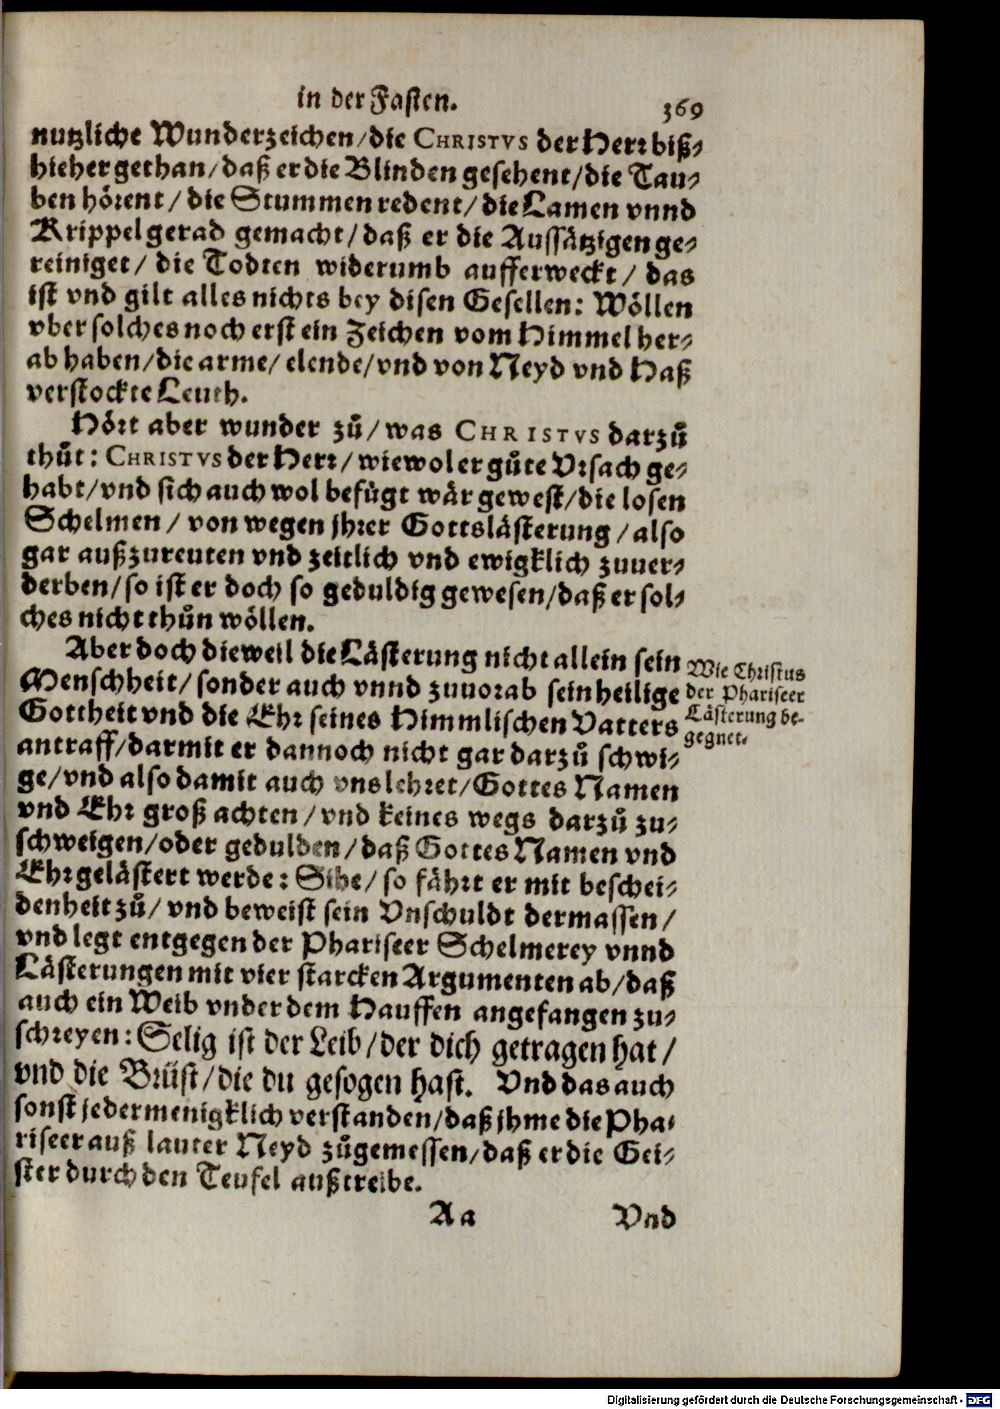 in der Fasten.
369
nutzliche Wunderzeichen/die CHRISTVS der Herr biß-
hieher gethan/daß er die Blinden gesehent/die Tau-
ben hörent/die Stummen redent/die Lamen vnnd
Krippel gerad gemacht/daß er die Aussätzigen ge-
reiniget/ die Todten widerumb aufferweckt/ das
ist vnd gilt alles nichts bey disen Gesellen: Wöllen
vber solches noch erst ein Zeichen vom Himmel her-
ab haben/die arme/ elende/vnd von Neyd vnd Haß
verstockte Leuth.
Hört aber wunder zů/was CHRISTVS darzů
thůt: CHRISTVS der Herr/wiewol er gůte Vrsach ge-
habt/vnd sich auch wol befügt wär gewest/die losen
Schelmen/ von wegen jhrer Gottslästerung/also
gar außzureuten vnd zeitlich vnd ewigklich zuuer-
derben/so ist er doch so geduldig gewesen/daß er sol-
ches nicht thůn wöllen.
Aber doch dieweil die Lästerung nicht allein sein
Menschheit/sonder auch vnnd zuuorab sein heilige
Gottheit vnd die Ehr seines Himmlischen Vatters
antraff/darmit er dannoch nicht gar darzů schwi-
ge/vnd also damit auch vns lehret/Gottes Namen
vnd Ehr groß achten/vnd keines wegs darzů zu-
schweigen/oder gedulden/daß Gottes Namen vnd
Ehr gelästert werde: Sihe/so fährt er mit beschei-
denheit zů/ vnd beweist sein Vnschuldt dermassen/
vnd legt entgegen der Phariseer Schelmerey vnnd
Lästerungen mit vier starcken Argumenten ab/daß
auch ein Weib vnder dem Hauffen angefangen zu-
schreyen: Selig ist der Leib/der dich getragen hat/
vnd die Brüst/die du gesogen hast. Vnd das auch
sonst jedermenigklich verstanden/daß jhme die Pha-
riseer auß lauter Neyd zůgemessen/daß er die Gei-
ster durch den Teufel außtreibe.
Wie Christus
der Phariseer
Lästerung be-
gegnet.
Aa
Vnd
Digitalisierung gefördert durch die Deutsche Forschungsgemeinschaft - DFG